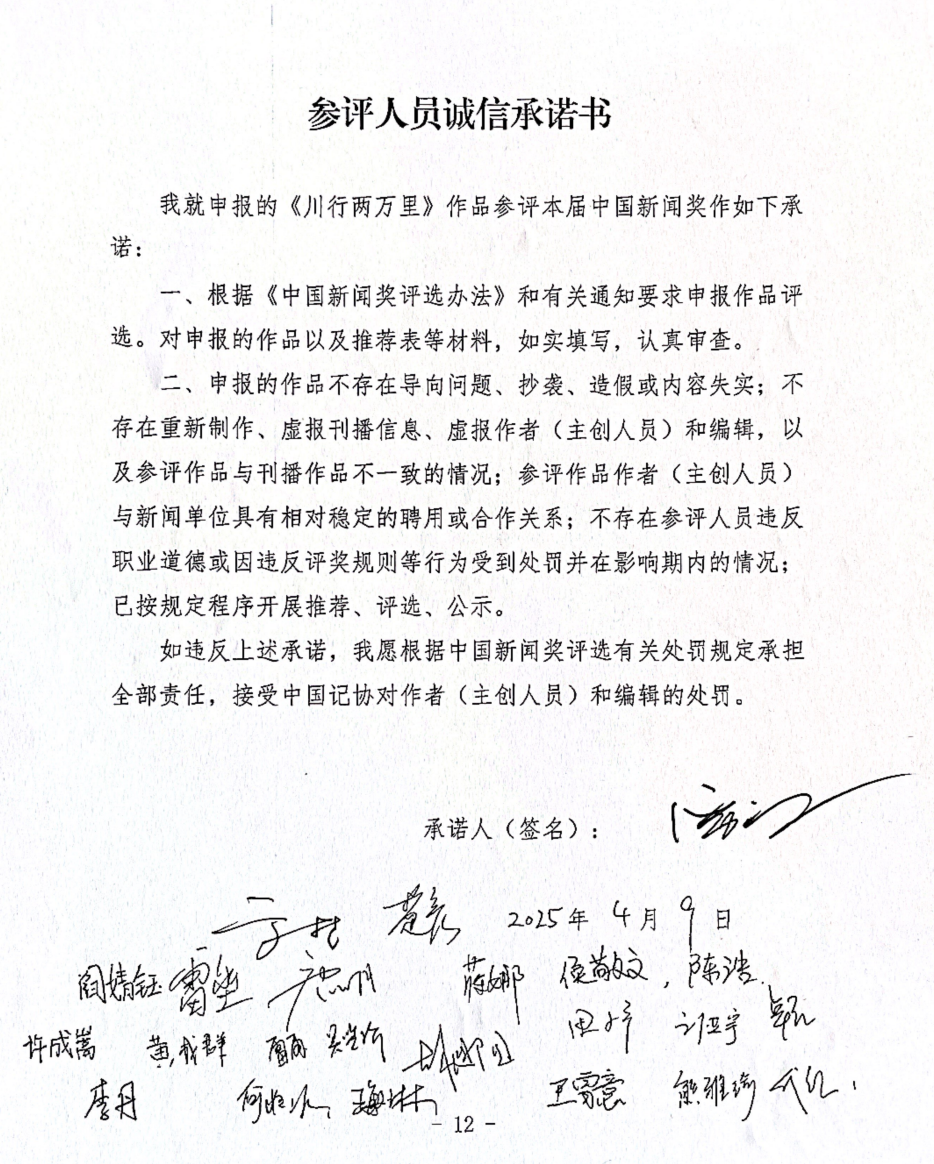 参评人员诚信承诺书
我就申报的《川行两万里》作品参评本届中国新闻奖作如下承
诺：
一、根据《中国新闻奖评选办法》和有关通知要求申报作品评
选。对申报的作品以及推荐表等材料，如实填写，认真审查。
二、申报的作品不存在导向问题、抄袭、造假或内容失实；不
存在重新制作、虚报刊播信息、虚报作者（主创人员）和编辑，以
及参评作品与刊播作品不一致的情况；参评作品作者（主创人员）
与新闻单位具有相对稳定的聘用或合作关系；不存在参评人员违反
职业道德或因违反评奖规则等行为受到处罚并在影响期内的情况；
已按规定程序开展推荐、评选、公示。
如违反上述承诺，我愿根据中国新闻奖评选有关处罚规定承担
全部责任，接受中国记协对作者（主创人员）和编辑的处罚。
承诺人（签名）：
2025年 4月 9日
阎婧钰 蒋娜 侯敬文，陈浩
许成嵩 黄我群
李丹 熊雅琦
- 12 -